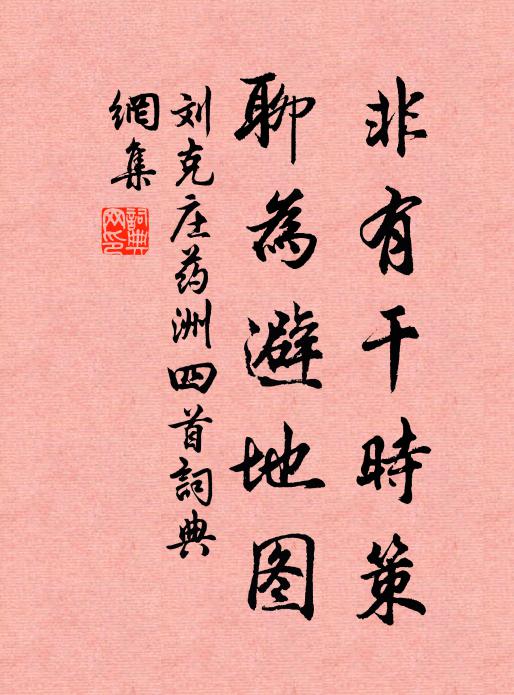 非有干時策
聊為避地图
刘克庄药洲四首詞典
網集
詞典網印